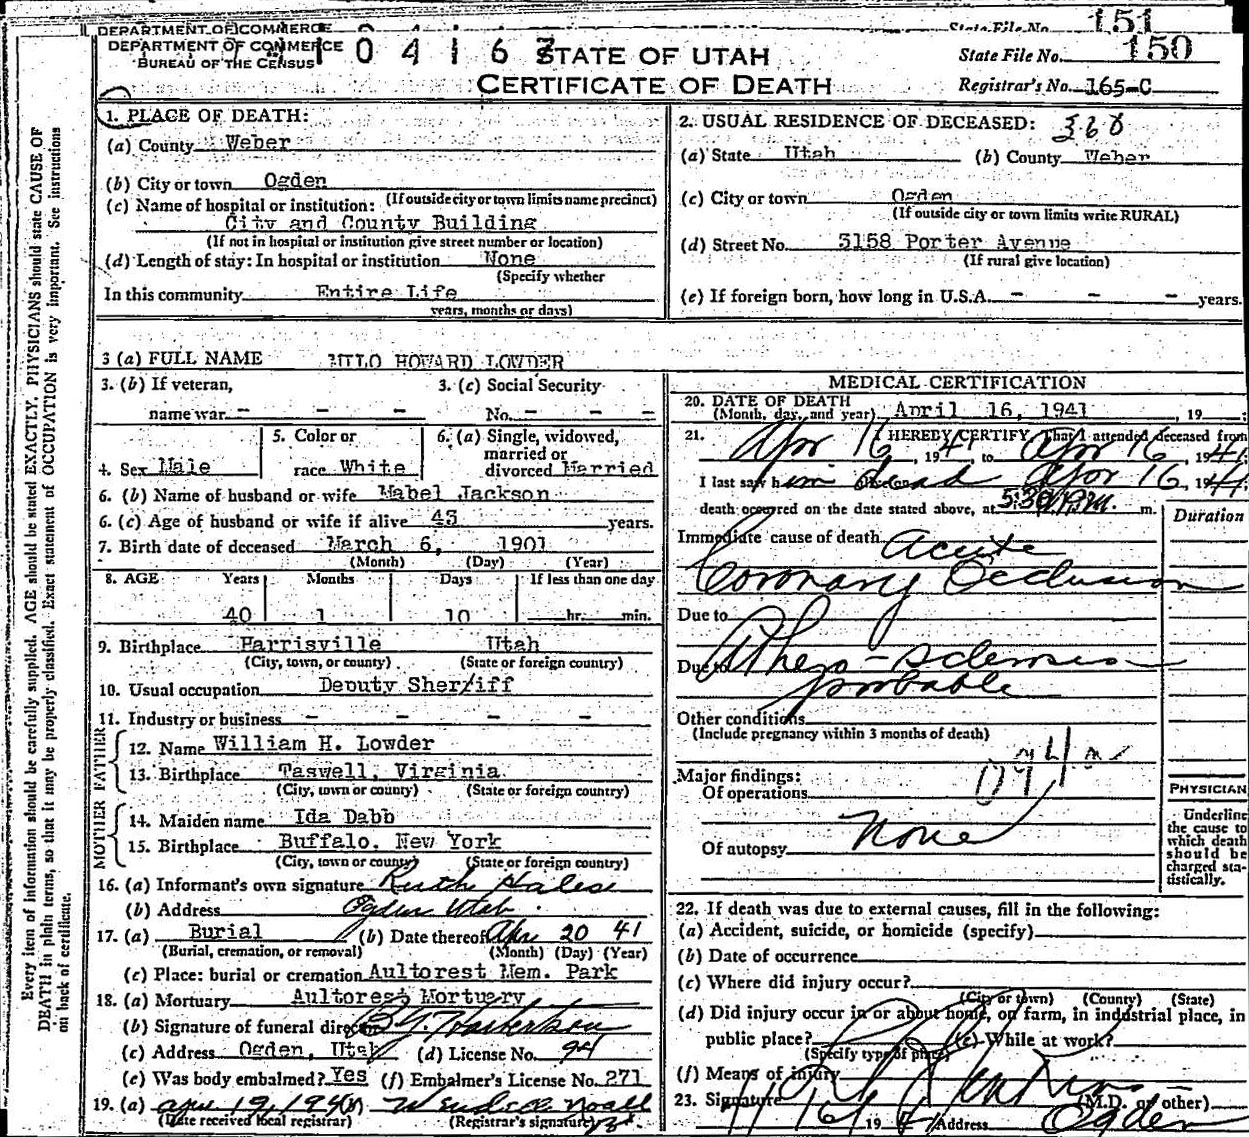 DEPARTMENT OF COMMERCE
DEPARTMENT OF COMMERCE
BUREAU OF THE CENSUS
0 4 1 6
STATE OF UTAH
CERTIFICATE OF DEATH
State File No. 151
State File No. 150
Registrar's No. 165-C
Every item of information should be carefully supplied. AGE should be stated EXACTLY. PHYSICIANS should state CAUSE OF
DEATH in plain terms, so that it may be properly classified. Exact statement of OCCUPATION is very important. See instructions
on back of certificate.
1. PLACE OF DEATH:
(a) County Weber
(b) City or town Ogden
(If outside city or town limits name precinct)
(c) Name of hospital or institution:
City and County Building
(If not in hospital or institution give street number or location)
(d) Length of stay: In hospital or institution None
(Specify whether
In this community Entire Life
years, months or days)
2. USUAL RESIDENCE OF DECEASED: 360
(a) State Utah (b) County Weber
(c) City or town Ogden
(If outside city or town limits write RURAL)
(d) Street No. 3158 Porter Avenue
(If rural give location)
(e) If foreign born, how long in U.S.A. - - - years.
3 (a) FULL NAME MILO HOWARD LOWDER
3. (b) If veteran,
name war - - -
3. (c) Social Security
No. - - -
4. Sex Male
5. Color or
race White
6. (a) Single, widowed,
married or
divorced Married
6. (b) Name of husband or wife Mabel Jackson
6. (c) Age of husband or wife if alive 43 years.
7. Birth date of deceased March 6, 1901
(Month) (Day) (Year)
8. AGE Years Months Days If less than one day
40 1 10 hr. min.
9. Birthplace Harrisville Utah
(City, town, or county) (State or foreign country)
10. Usual occupation Deputy Sheriff
11. Industry or business - - - -
FATHER
12. Name William H. Lowder
13. Birthplace Taswell, Virginia
(City, town or county) (State or foreign country)
MOTHER
14. Maiden name Ida Dabb
15. Birthplace Buffalo, New York
(City, town or county) (State or foreign country)
16. (a) Informant's own signature Ruth Hales
(b) Address Ogden Utah.
17. (a) Burial (b) Date thereof Apr 20 41
(Burial, cremation, or removal) (Month) (Day) (Year)
(c) Place: burial or cremation Aultorest Mem. Park
18. (a) Mortuary Aultorest Mortuary
(b) Signature of funeral director
(c) Address Ogden, Utah (d) License No. 94
(e) Was body embalmed? Yes (f) Embalmer's License No. 271
19. (a) Apr 19, 1941 Wendell Noall
(Date received local registrar) (Registrar's signature)
MEDICAL CERTIFICATION
20. DATE OF DEATH
(Month, day, and year) April 16, 1941, 19
21. I HEREBY CERTIFY, That I attended deceased from
Apr 16, 1941, to Apr 16, 1941
I last saw him dead Apr 16, 1941
death occurred on the date stated above, at 5:30 P.M. m.
Duration
Immediate cause of death Acute
Coronary Occlusion
Due to
Due to Athero-sclerosis
probable
Other conditions
(Include pregnancy within 3 months of death)
Major findings:
Of operations
Of autopsy None
PHYSICIAN
Underline
the cause to
which death
should be
charged sta-
tistically.
22. If death was due to external causes, fill in the following:
(a) Accident, suicide, or homicide (specify)
(b) Date of occurrence
(c) Where did injury occur?
(City or town) (County) (State)
(d) Did injury occur in or about home, on farm, in industrial place, in
public place? (e) While at work?
(Specify type of place)
(f) Means of injury
23. Signature (M.D. or other)
19 41 Address Ogden